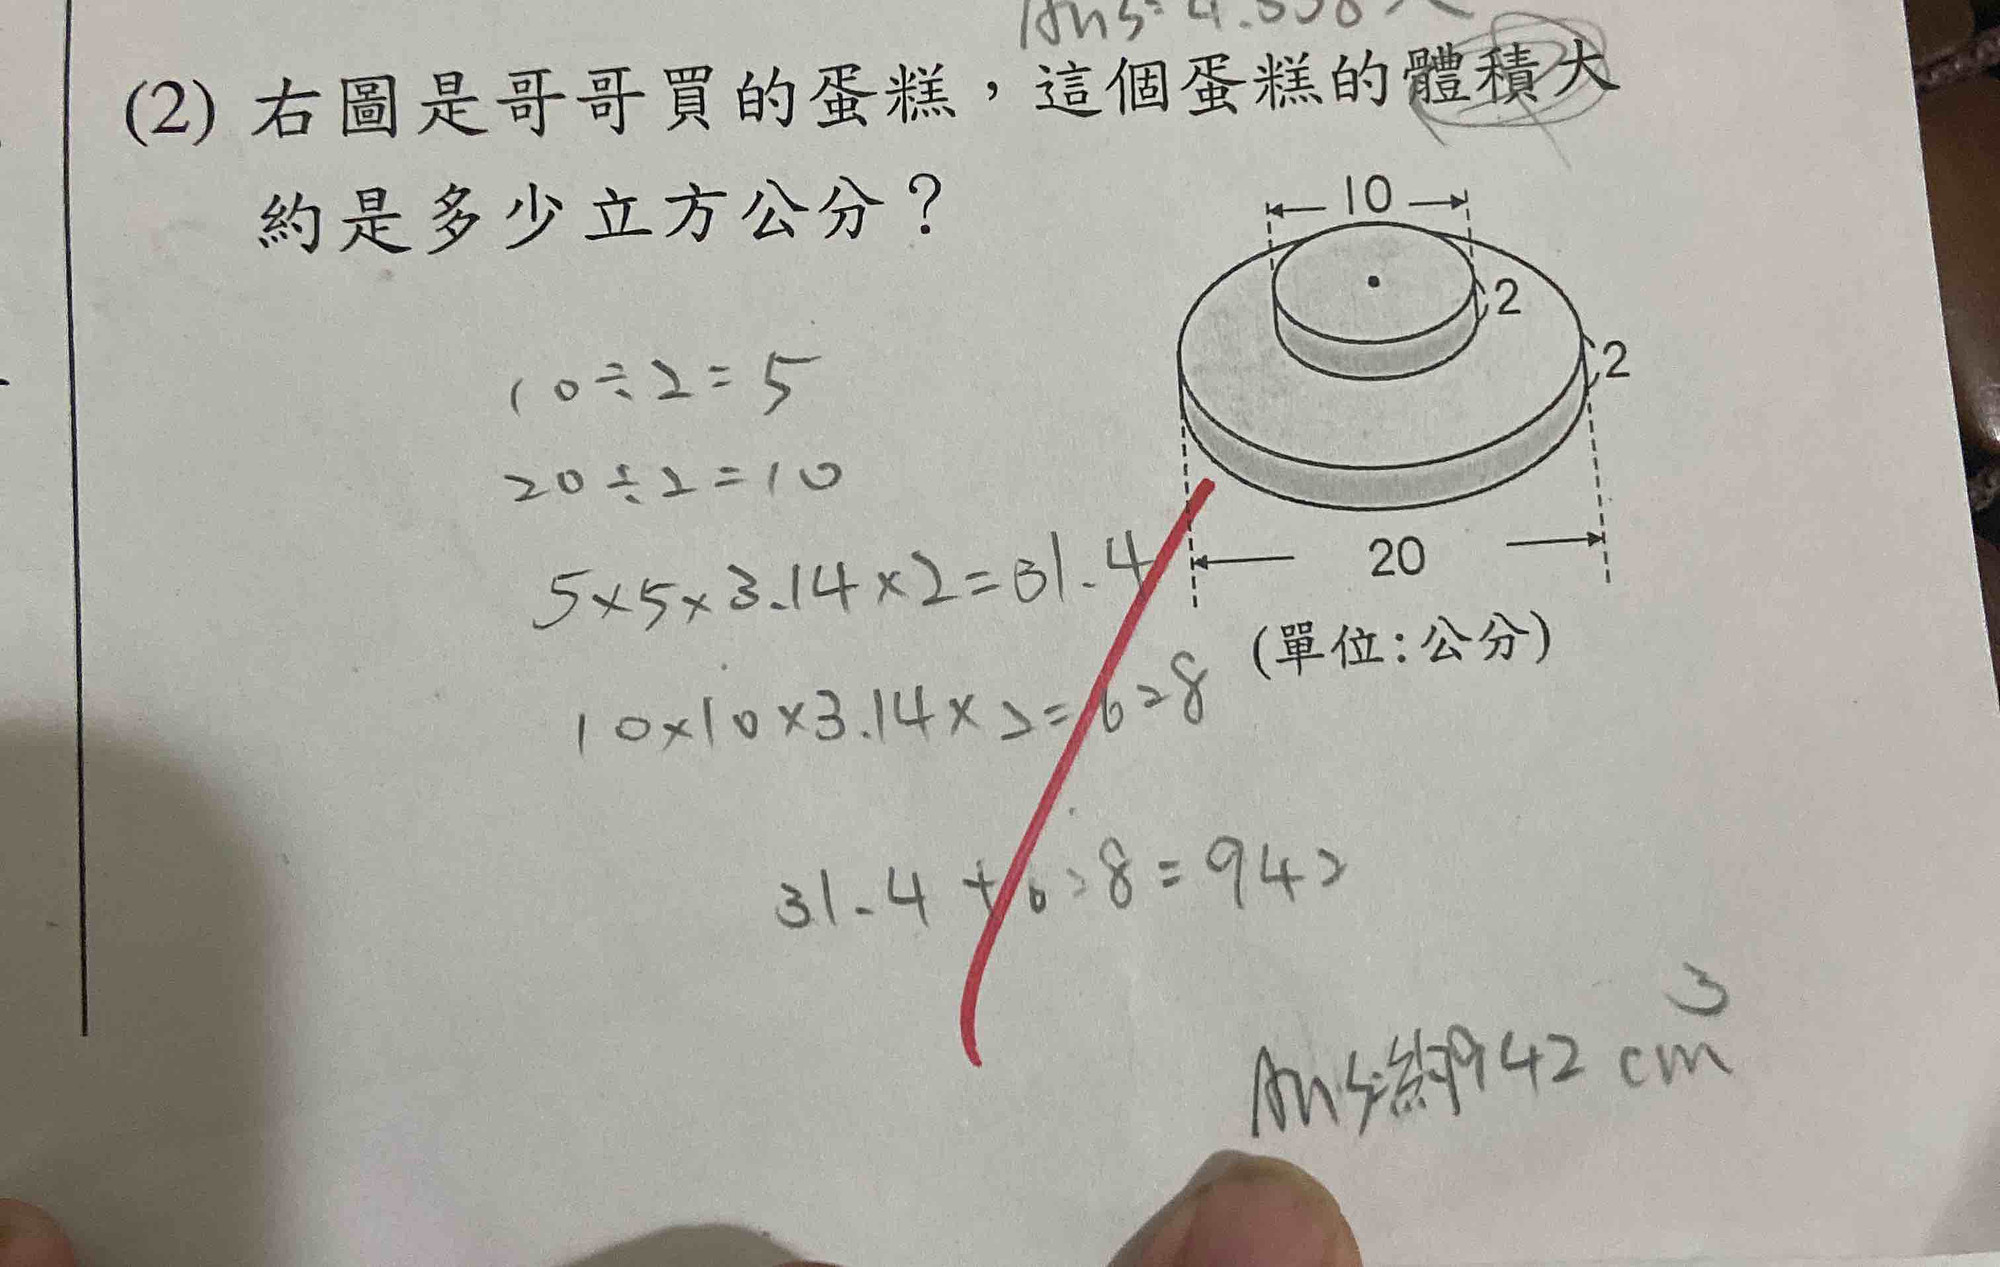 (2) 右圖是哥哥買的蛋糕，這個蛋糕的體積大
約是多少立方公分？
10
2
2
20
(單位:公分)
10÷2=5
20÷2=10
5×5×3.14×2=31.4
10×10×3.14×2=628
31.4+628=942
Ans:約942 cm³